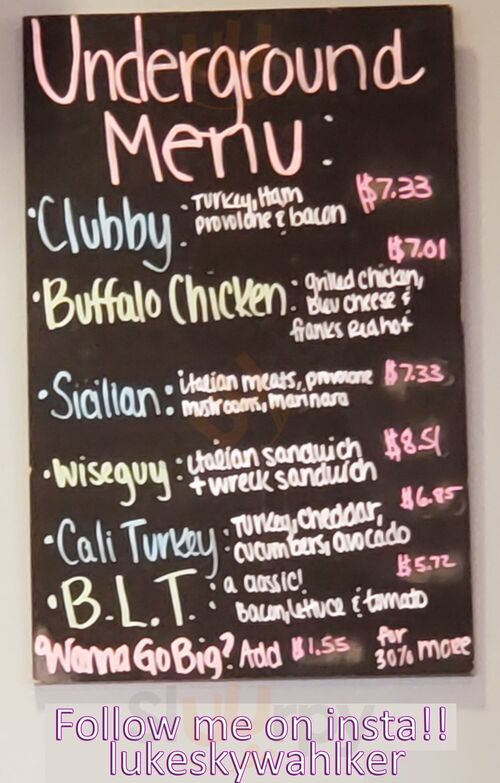 Underground
Menu:
·Clubby: Turkey, Ham $7.33
provolone & bacon
$7.01
·Buffalo Chicken: grilled chicken,
bleu cheese &
franks red hot
·Sicilian: italian meats, provolone $7.33
mushrooms, marinara
·Wiseguy: italian sandwich $8.51
+ wreck sandwich
$6.85
·Cali Turkey: Turkey, Cheddar,
cucumbers, avocado
$5.72
·B.L.T.: a classic!
Bacon, lettuce & tomato
Wanna Go Big? Add $1.55 for
30% more
Follow me on insta!!
lukeskywahlker